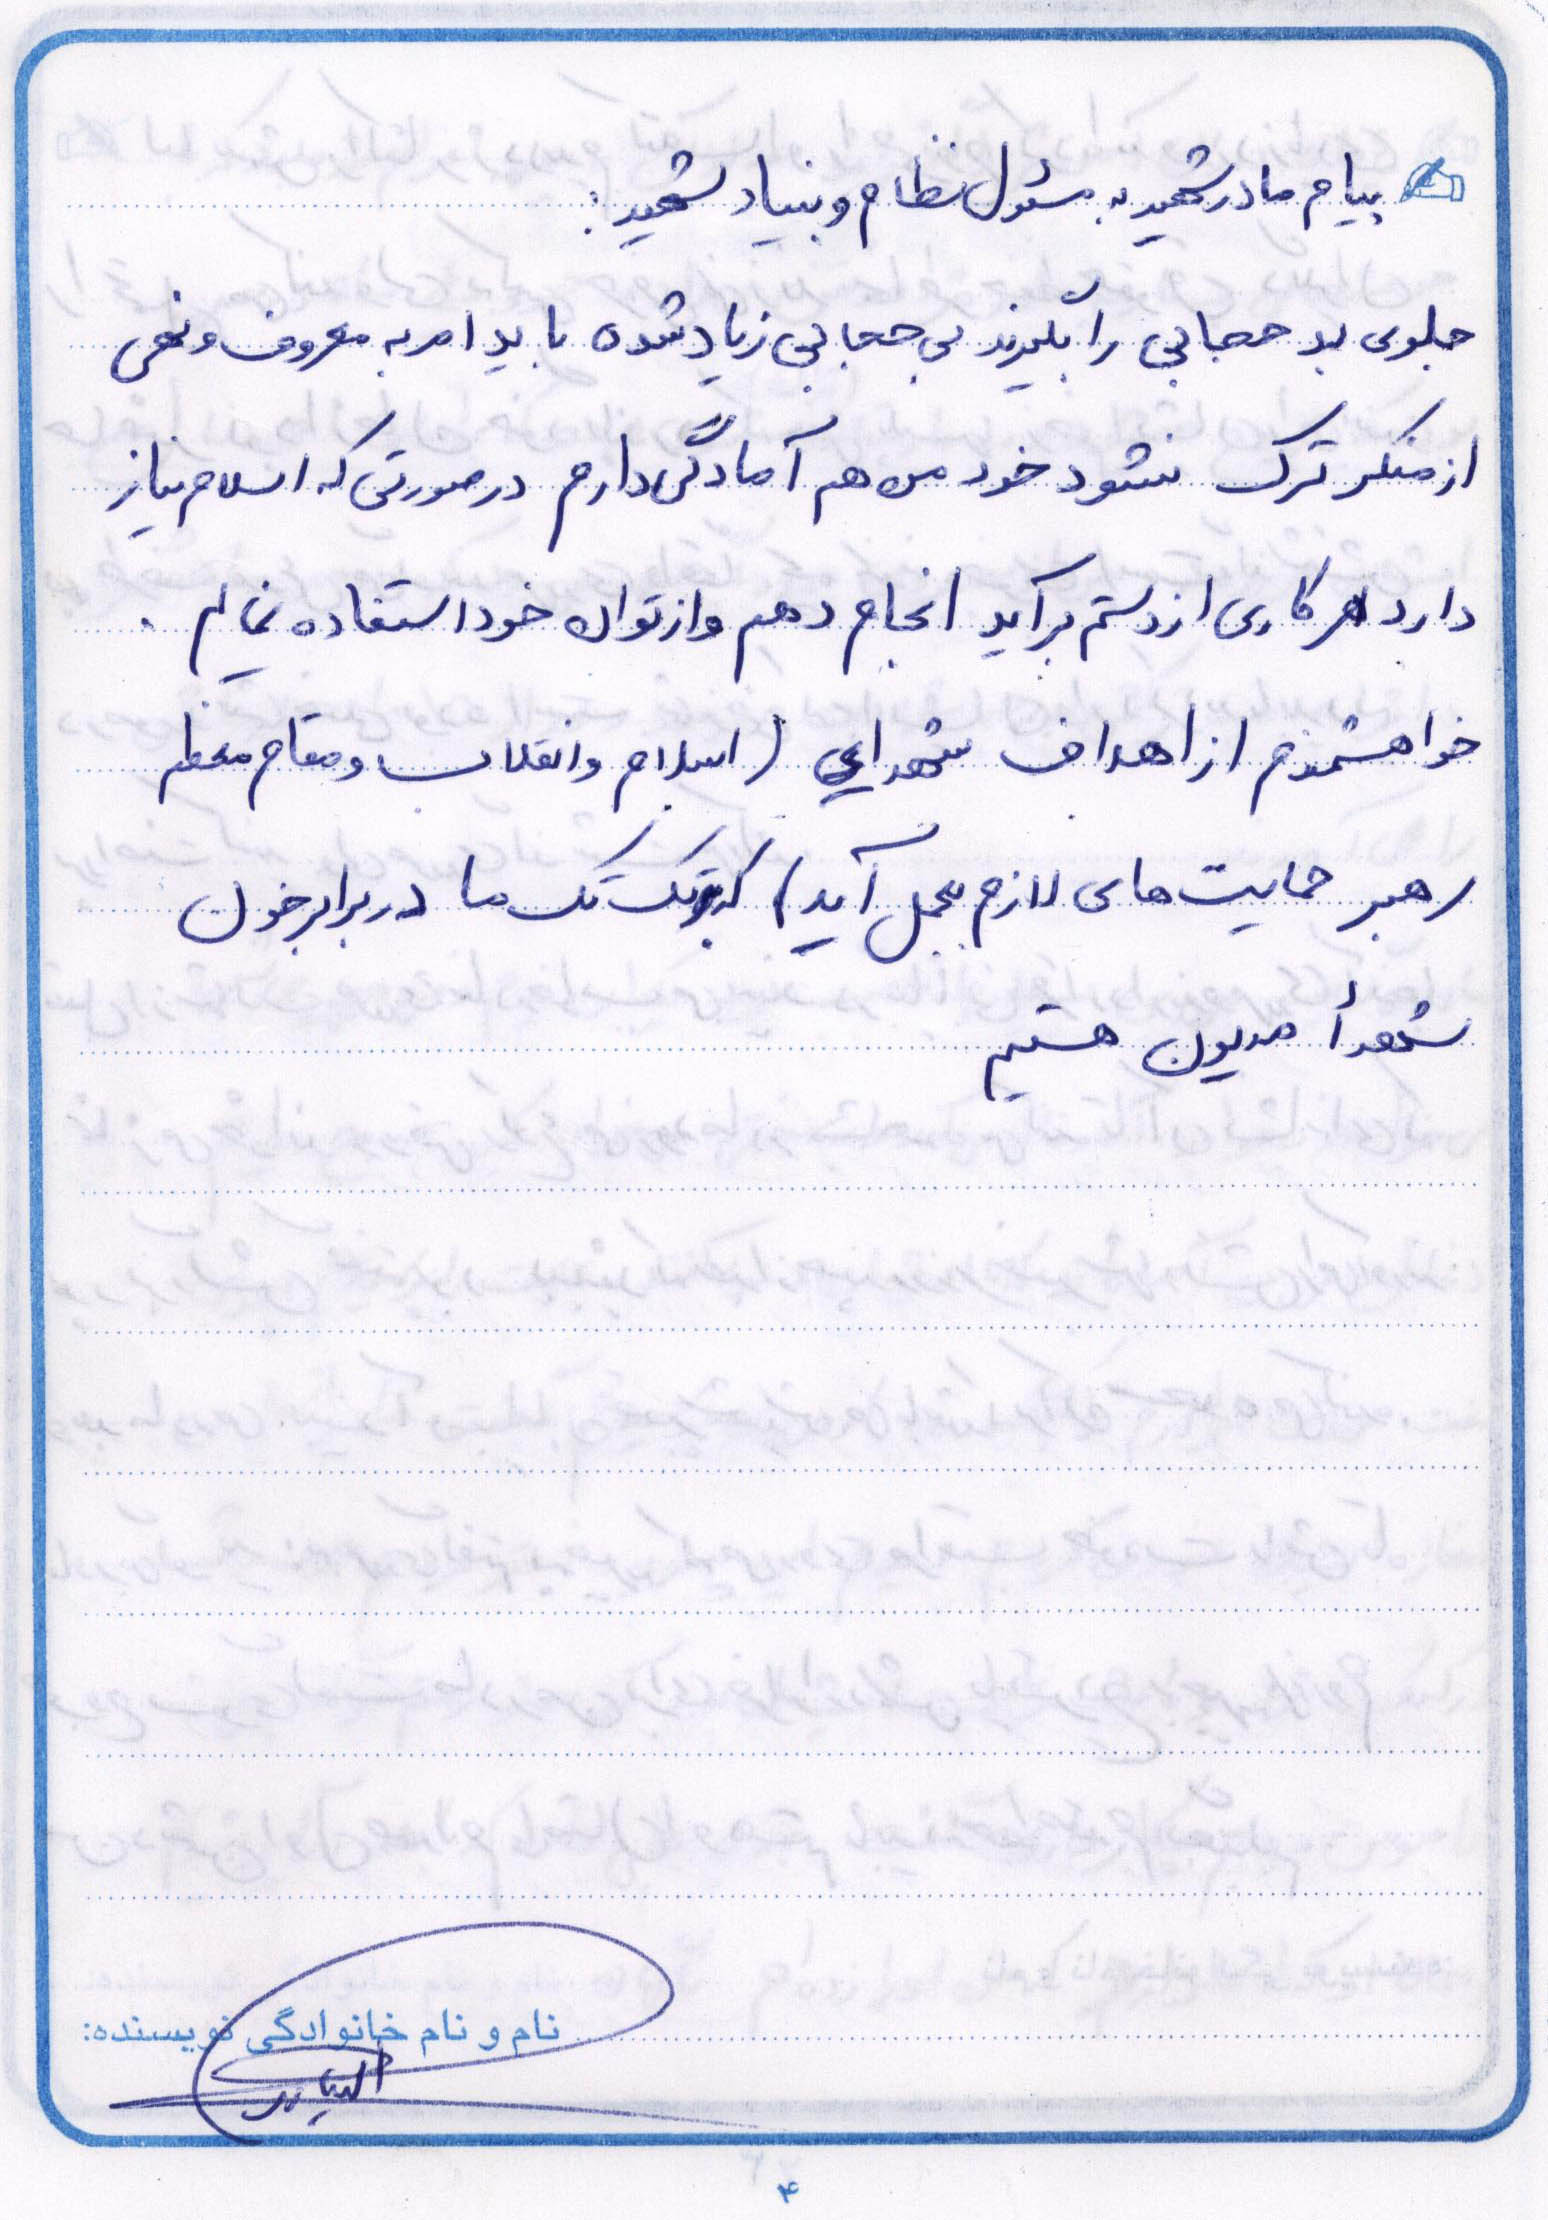 پیام مادر شهید به مسئول نظام و بنیاد شهید:
جلوی بد حجابی را بگیرند بی حجابی زیاد شده باید امر به معروف و نهی
از منکر ترک نشود خود من هم آمادگی دارم در صورتی که اسلام نیاز
دارد هر کاری از دستم برآید انجام دهم و از توان خود استفاده نمایم.
خواهشمندم از اهداف شهدای (اسلام و انقلاب و مقام معظم
رهبر حمایت های لازم بعمل آید) که تک تک ما در برابر خون
شهدأ مدیون هستیم
نام و نام خانوادگی نویسنده:
۴